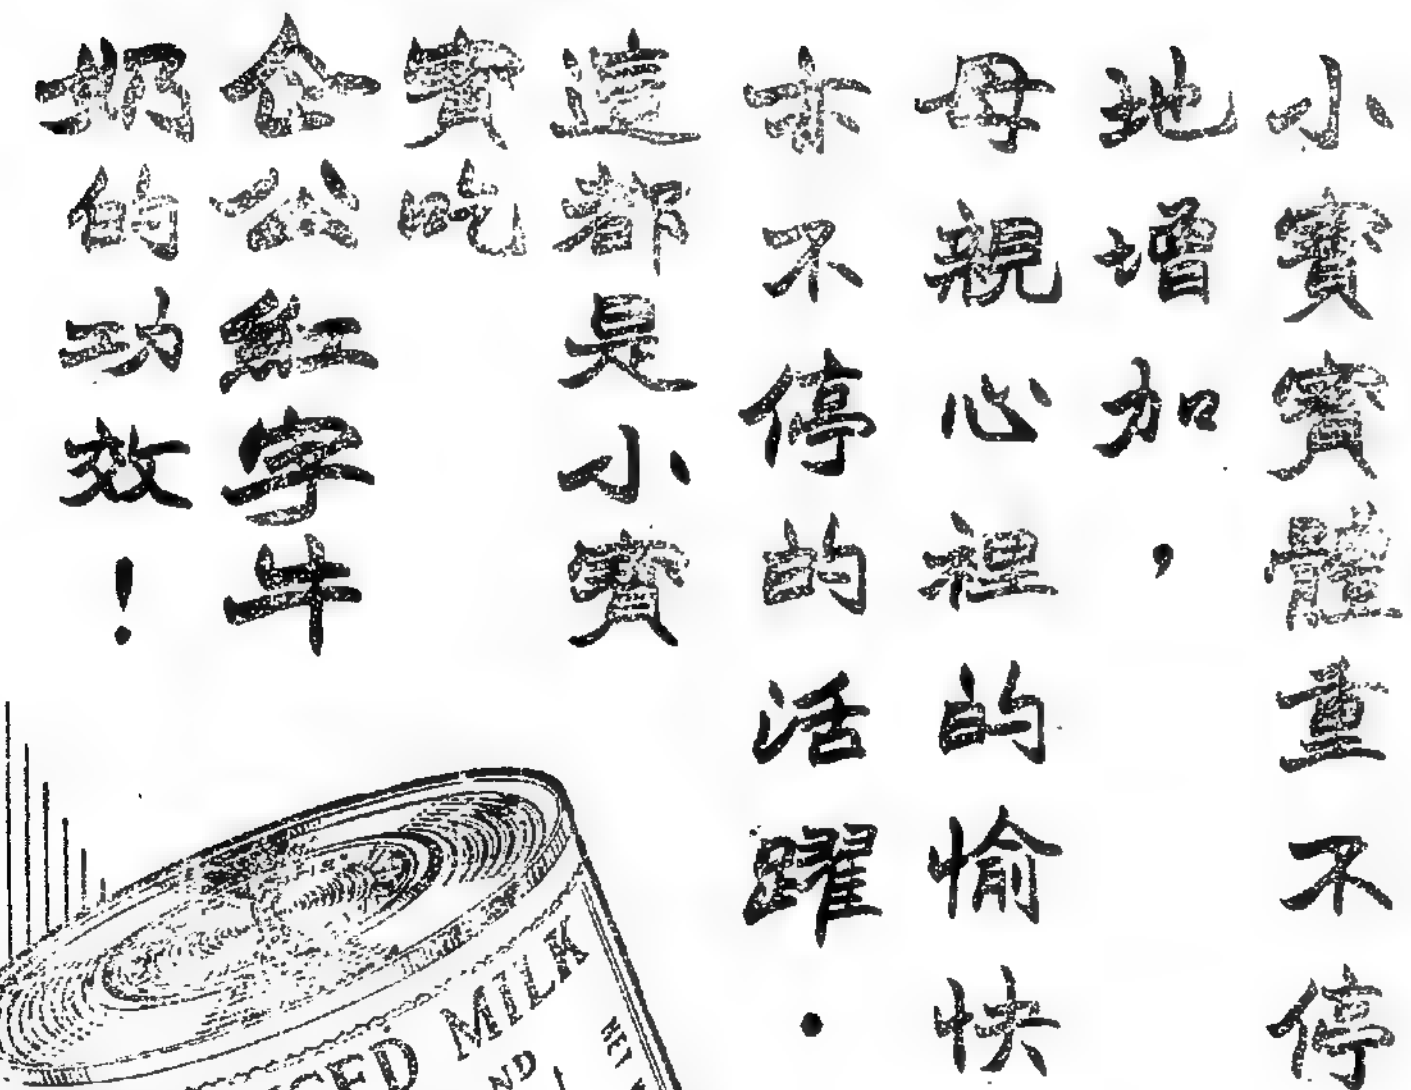 小寶寶體重不停
地增加，
母親心裡的愉快
亦不停的活躍．
這都是小寶
寶吃
企公紅字牛
奶的功效！
SED MILK
ND
NET